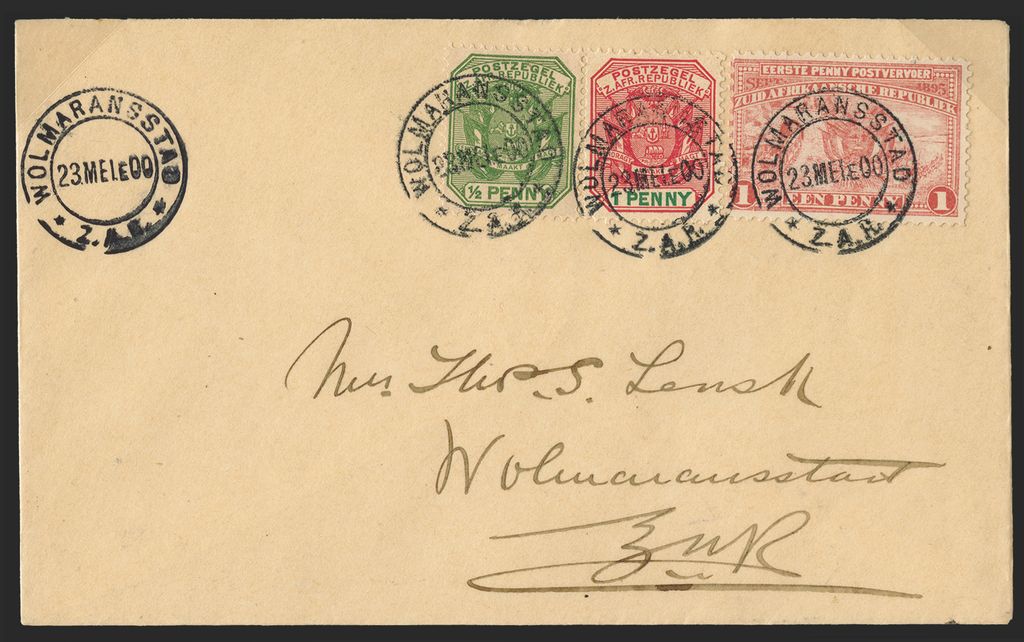 WOLMARANSSTAD
23.MEI.E00
Z.A.R.
POSTZEGEL
Z.AFR.REPUBLIEK
½ PENNY
WOLMARANSSTAD
23.MEI.E
Z.A.R.
POSTZEGEL
Z.AFR.REPUBLIEK
1 PENNY
WOLMARANSSTAD
23.MEI.E00
Z.A.R.
EERSTE PENNY POSTVERVOER
SEPT. 1895
ZUID AFRIKAANSCHE REPUBLIEK
1 EEN PENNY 1
WOLMARANSSTAD
23.MEI.E00
Z.A.R.
Thos. S. Lensk
Wolmaransstad
ZAR